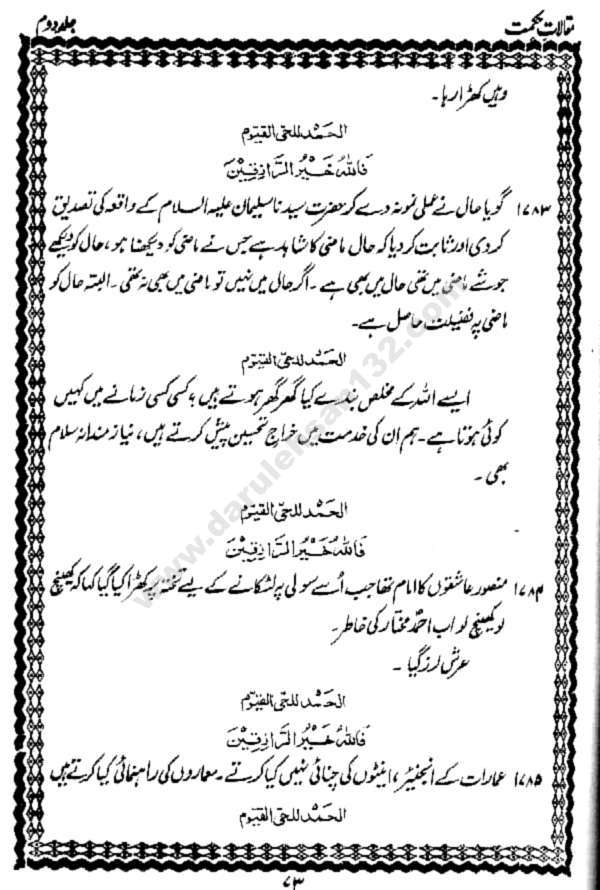 مقالاتِ حکمت
جلد دوم
وہیں کھڑا رہا ۔
الحَمْد للحیّ القیّوم
فَاللّٰهُ خَیْرُ الرَّازِقِیْنَ
۱۷۸۳ گویا حال نے عملی نمونہ دے کر حضرت سیدنا سلیمان علیہ السلام کے واقعہ کی تصدیق
کر دی اور ثابت کر دیا کہ حال ماضی کا شاہد ہے جس نے ماضی کو دیکھنا ہو ، حال کو دیکھے
جو شے ماضی میں تھی حال میں بھی ہے ۔ اگر حال میں نہیں تو ماضی میں بھی نہ تھی ۔ البتہ حال کو
ماضی پہ فضیلت حاصل ہے۔
الحَمْد للحیّ القیّوم
ایسے اللہ کے مخلص بندے کیا گھر گھر ہوتے ہیں ؟ کسی کسی زمانے میں کہیں
کوئی ہوتا ہے ۔ ہم ان کی خدمت میں خراجِ تحسین پیش کرتے ہیں ، نیازمندانہ سلام
بھی ۔
الحَمْد للحیّ القیّوم
فَاللّٰهُ خَیْرُ الرَّازِقِیْنَ
۱۷۸۴ منصور عاشقوں کا امام تھا جب اُسے سولی پر لٹکانے کے لیے تختہ پر کھڑا کیا گیا کہا کہ کھینچ
لو کھینچ لو اب احمدؐ مختار کی خاطر ۔
عرش لرز گیا ۔
الحَمْد للحیّ القیّوم
فَاللّٰهُ خَیْرُ الرَّازِقِیْنَ
۱۷۸۵ عمارات کے انجنیئر ، اینٹوں کی چنائی نہیں کیا کرتے ۔ معماروں کی راہنمائی کیا کرتے ہیں
الحَمْد للحیّ القیّوم
۷۳
www.darulehsan132.com